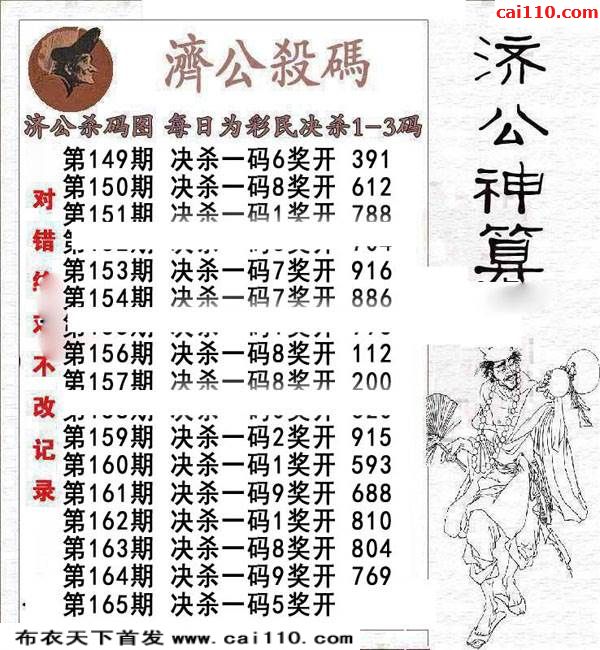 cai110.com
濟公殺碼
济公杀码图 每日为彩民决杀1-3码
第149期 决杀一码6奖开 391
第150期 决杀一码8奖开 612
第151期 决杀一码1奖开 788
第153期 决杀一码7奖开 916
第154期 决杀一码7奖开 886
第156期 决杀一码8奖开 112
第157期 决杀一码8奖开 200
第159期 决杀一码2奖开 915
第160期 决杀一码1奖开 593
第161期 决杀一码9奖开 688
第162期 决杀一码1奖开 810
第163期 决杀一码8奖开 804
第164期 决杀一码9奖开 769
第165期 决杀一码5奖开
对错
不改记录
济公神算
布衣天下首发 www.cai110.com